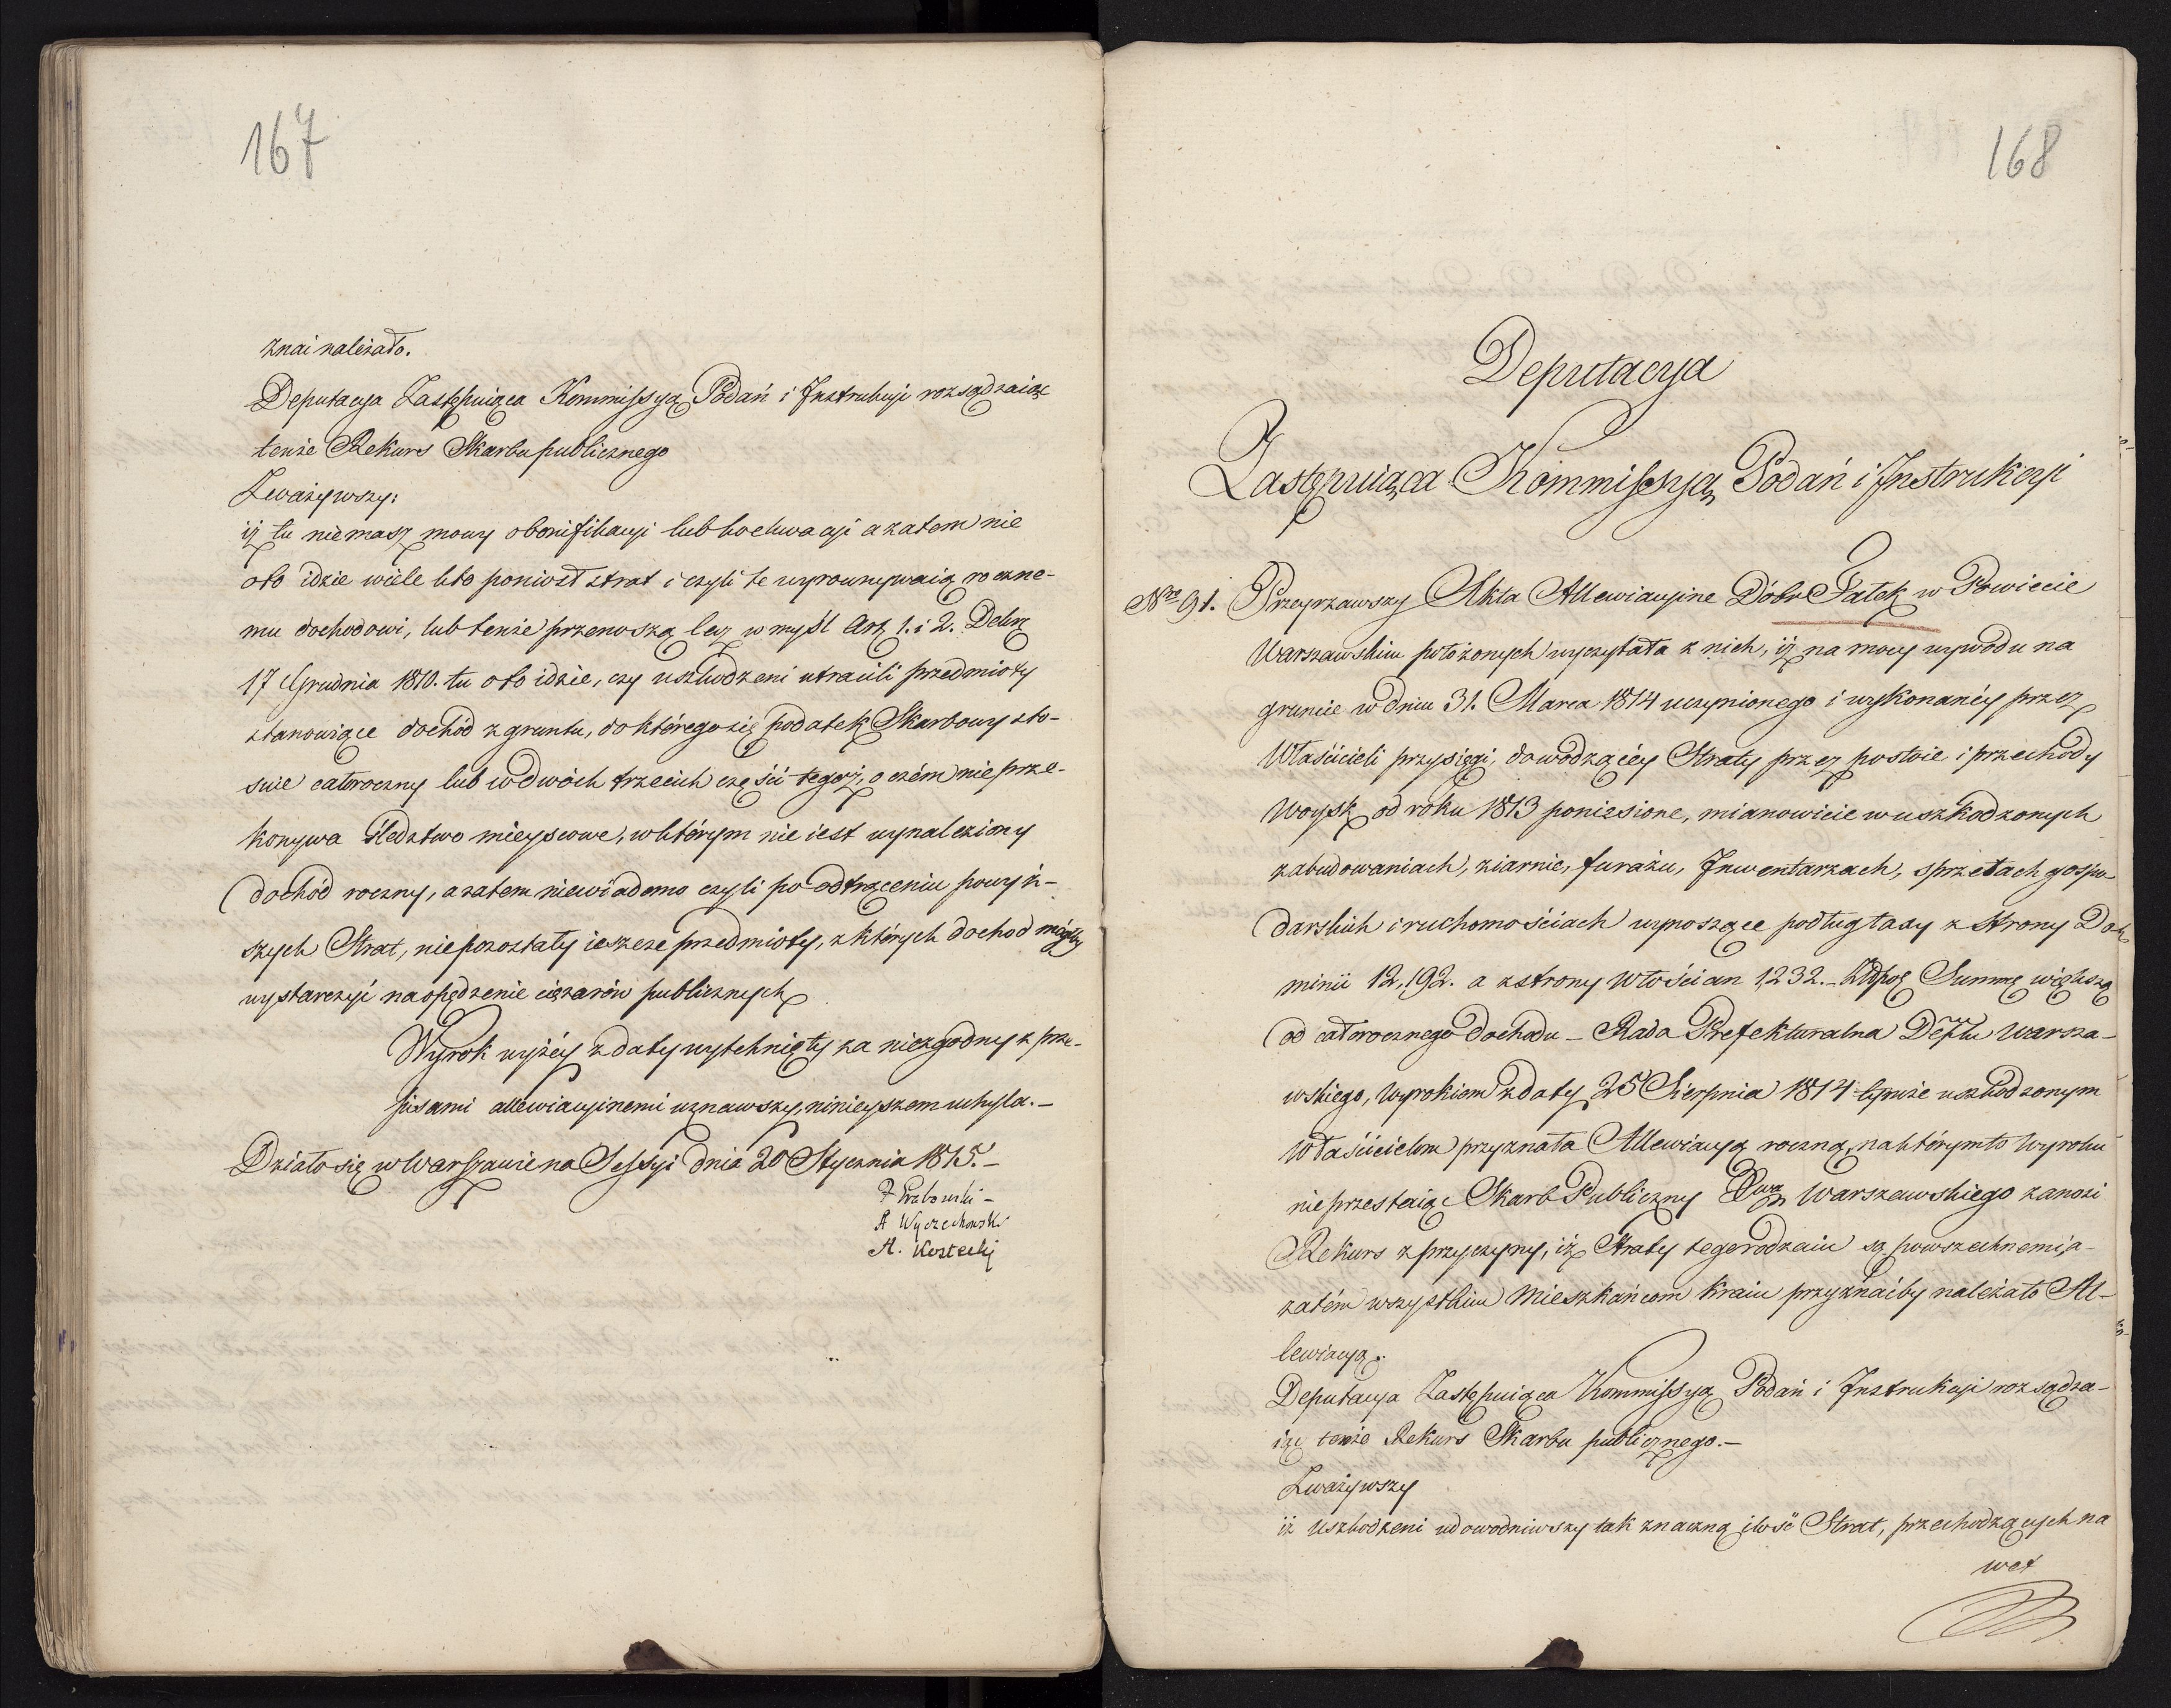 167
znai należało.
Deputacya Zastępuiąca Kommissyą Podań i Instrukcji rozsądzaiąc
tenże Rekurs Skarbu publicznego
Zważywszy:
iż tu niemasz mowy obonifikacyi lub boehwacyi a zatem nie
oto idzie wiele kto poniosł strat i czyli te wyrownywaią roczne-
mu dochodowi, lub tenże przenoszą lecz w myśl Art. 1. i 2. Dekr.
17 Grudnia 1810. tu oto idzie, czy uszkodzeni utracili przedmioty
stanowiące dochód z gruntu, do którego się podatek Skarbowy sto-
suie całoroczny lub w dwóch trzecich części tegoż, o czém nie prze-
konywa śledztwo mieyscowe, w którym nie iest wynaleziony
dochód roczny, a zatem niewiadomo czyli po odtrąceniu powyż-
szych Strat, niepozostały ieszcze przedmioty, z których dochod mógłby
wystarczyć na opędzenie ciężarów publicznych
Wyrok wyżéy z daty wytchnięty za niezgodny z prze-
pisami allewiacyinemi uznawszy, ninieyszem uchyla. -
Działo się w Warszawie na Sessyi dnia 20 Stycznia 1815. -
A Wyczechowski
A. Kostecki
168
Deputacya
Zastępuiąca Kommissyą Podań i Instrukcyi
Nro 91. Przeyrzawszy Akta Allewiacyine Dóbr Fałek w Powiecie
Warszawskim położonych wyczytała z nich, iż na mocy wywodu na
gruncie w dniu 31. Marca 1814 uczynionego i wykonanéy przez
Właścicieli przysięgi, dowodzącéy Straty przez postoie i przechody
Woysk od roku 1813 poniesione, mianowicie w uszkodzonych
zabudowaniach, ziarnie, furażu, Inwentarzach, sprzętach gospo-
darskich i ruchomościach wynoszące podług taxy z strony Do-
minii 12,192. a z strony Włościan 1,232. - Złłpol Summę większą
od całorocznego dochodu - Rada Prefekturalna Deptu Warsza-
wskiego, Wyrokiem z daty 25 Sierpnia 1814 tymże uszkodzonym
Właścicielom przyznała Allewiacyą roczną, na którymto Wyroku
nieprzestaiąc Skarb Publiczny Xwa Warszawskiego zanosi
Rekurs z przyczyny, iż Straty tegorodzaiu są powszechnemi, a
zatém wszystkim Mieszkańcom Kraiu przyznaćby należało Al-
lewiacyą.
Deputacya Zastępuiąca Kommissyą Podań i Instrukcyi rozsądza-
iąc tenże Rekurs Skarbu publicznego. -
Zważywszy
iż Uszkodzeni udowodniwszy tak znaczną ilość Strat, przechodzących na
wet